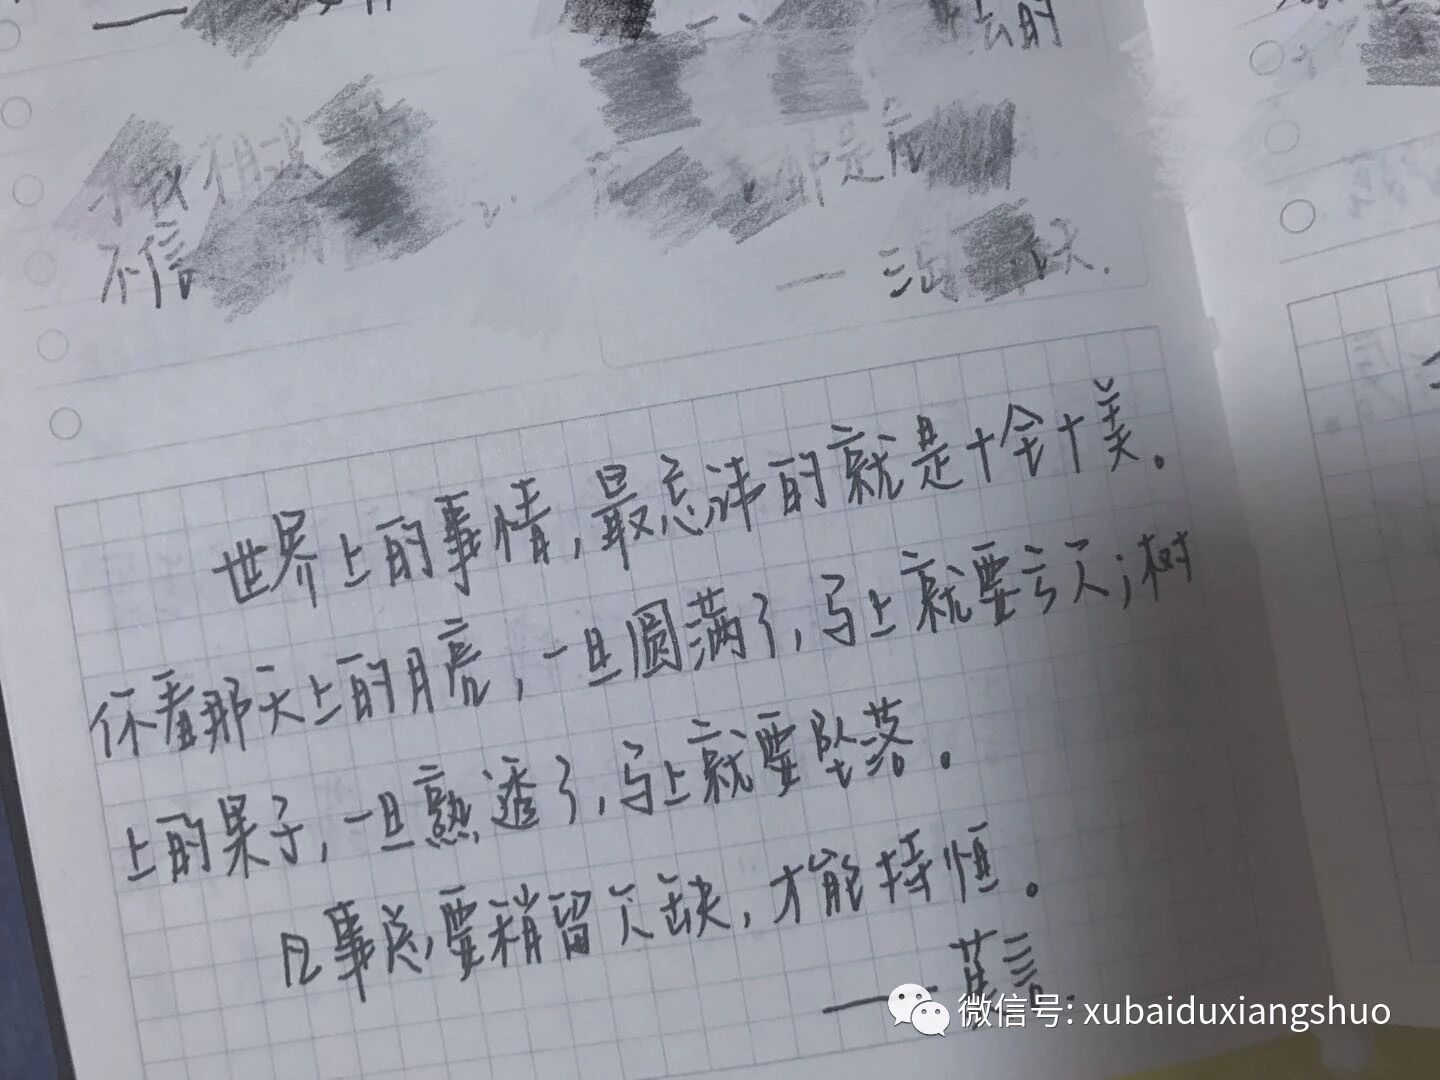 坛的
不信
都是
世界上的事情，最忌讳的就是十全十美。
你看那天上的月亮，一旦圆满了，马上就要亏欠；树
上的果子，一旦熟透了，马上就要坠落。
凡事总要稍留欠缺，才能持恒。
——莫言
微信号: xubaiduxiangshuo